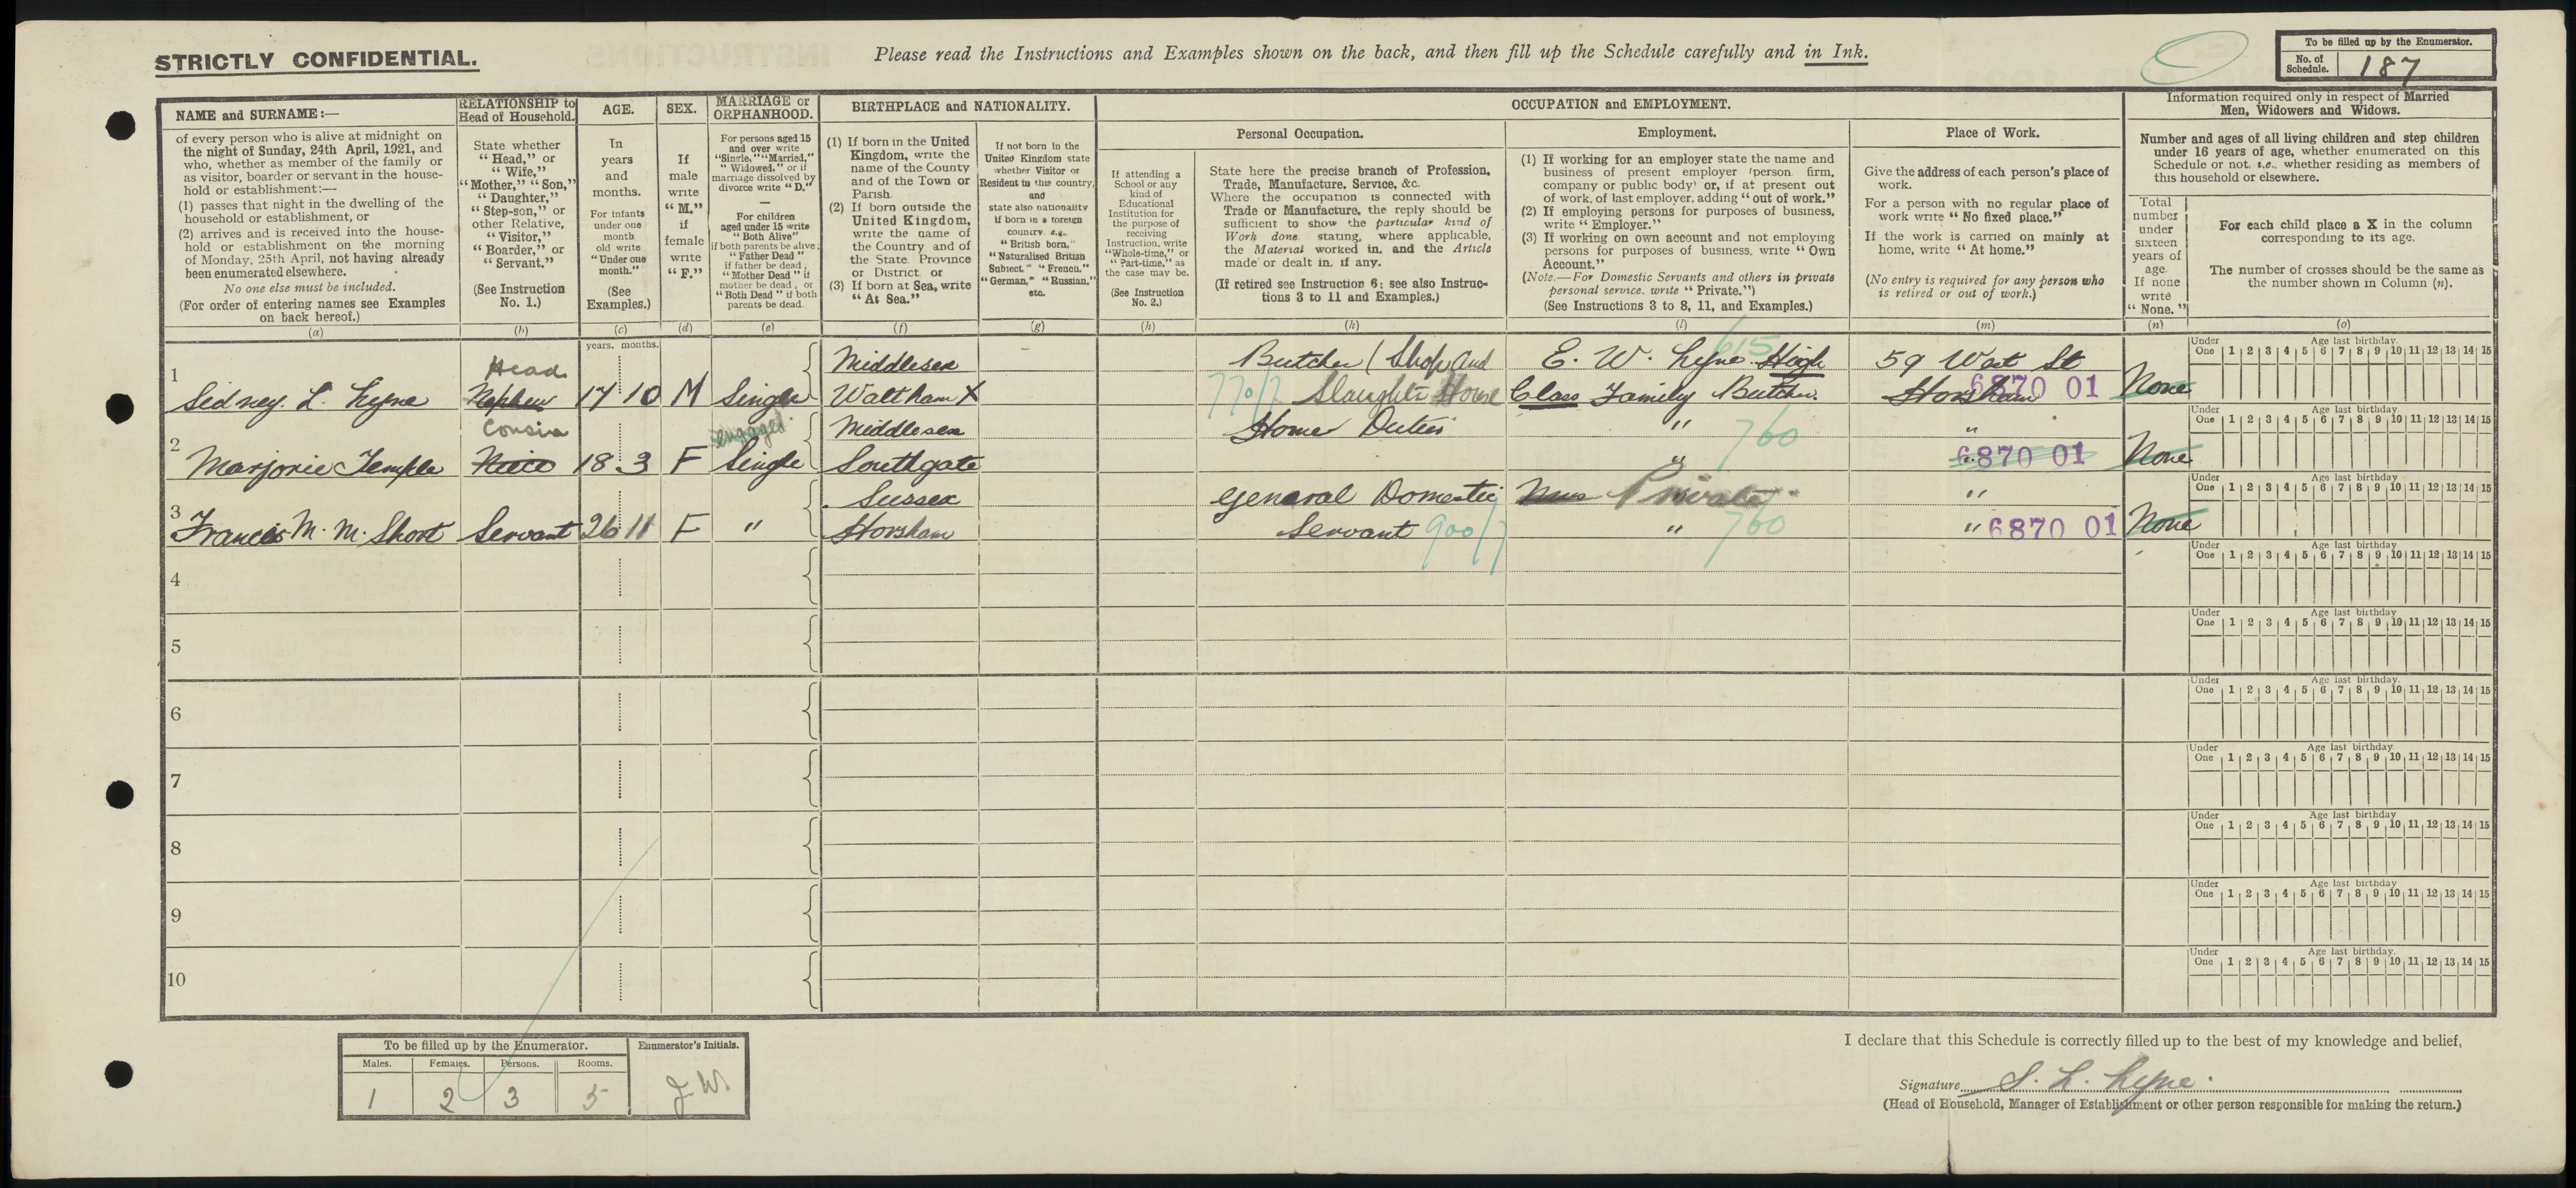 STRICTLY CONFIDENTIAL.
Please read the Instructions and Examples shown on the back, and then fill up the Schedule carefully and in Ink.
To be filled up by the Enumerator.
No. of Schedule. 187
NAME and SURNAME:—
of every person who is alive at midnight on
the night of Sunday, 24th April, 1921, and
who, whether as member of the family or
as visitor, boarder or servant in the house-
hold or establishment:—
(1) passes that night in the dwelling of the
household or establishment, or
(2) arrives and is received into the house-
hold or establishment on the morning
of Monday, 25th April, not having already
been enumerated elsewhere.
No one else must be included.
(For order of entering names see Examples
on back hereof.)
(a)
RELATIONSHIP to
Head of Household.
State whether
"Head," or
"Wife,"
"Mother," "Son,"
"Daughter,"
"Step-son," or
other Relative,
"Visitor,"
"Boarder," or
"Servant."
(See Instruction
No. 1.)
(b)
AGE.
In
years
and
months.
For infants
under one
month
old write
"Under one
month."
(See
Examples.)
(c)
SEX.
If
male
write
"M."
if
female
write
"F."
(d)
MARRIAGE or
ORPHANHOOD.
For persons aged 15
and over write
"Single," "Married,"
"Widowed," or if
marriage dissolved by
divorce write "D."
For children
aged under 15 write
"Both Alive"
if both parents be alive;
"Father Dead"
if father be dead;
"Mother Dead" if
mother be dead, or
"Both Dead" if both
parents be dead.
(e)
BIRTHPLACE and NATIONALITY.
(1) If born in the United
Kingdom, write the
name of the County
and of the Town or
Parish.
(2) If born outside the
United Kingdom,
write the name of
the Country and of
the State Province
or District or
(3) If born at Sea, write
"At Sea."
(f)
If not born in the
United Kingdom state
whether Visitor or
Resident in this country,
and
state also nationality
if born in a foreign
country, e.g.,
"British born,"
"Naturalised British
Subject," "French,"
"German," "Russian,"
etc.
(g)
OCCUPATION and EMPLOYMENT.
If attending a
School or any
kind of
Educational
Institution for
the purpose of
receiving
Instruction, write
"Whole-time," or
"Part-time," as
the case may be.
(See Instruction
No. 2.)
(h)
Personal Occupation.
State here the precise branch of Profession,
Trade, Manufacture, Service, &c.
Where the occupation is connected with
Trade or Manufacture, the reply should be
sufficient to show the particular kind of
Work done stating, where applicable,
the Material worked in, and the Article
made or dealt in, if any.
(If retired see Instruction 6; see also Instruc-
tions 3 to 11 and Examples.)
(k)
Employment.
(1) If working for an employer state the name and
business of present employer (person, firm,
company or public body) or, if at present out
of work, of last employer, adding "out of work."
(2) If employing persons for purposes of business,
write "Employer."
(3) If working on own account and not employing
persons for purposes of business, write "Own
Account."
(Note.—For Domestic Servants and others in private
personal service, write "Private.")
(See Instructions 3 to 8, 11, and Examples.)
(l)
Place of Work.
Give the address of each person's place of
work.
For a person with no regular place of
work write "No fixed place."
If the work is carried on mainly at
home, write "At home."
(No entry is required for any person who
is retired or out of work.)
(m)
Information required only in respect of Married
Men, Widowers and Widows.
Number and ages of all living children and step children
under 16 years of age, whether enumerated on this
Schedule or not, i.e., whether residing as members of
this household or elsewhere.
Total
number
under
sixteen
years of
age.
If none
write
"None."
(n)
For each child place a X in the column
corresponding to its age.
The number of crosses should be the same as
the number shown in Column (n).
(o)
years. months.
1
Head
Sidney. L. Lyne Nephew 17 10 M Single
Middlesex
Waltham X
Butcher (Shop and
770/7 Slaughter House
615
E. W. Lyne High
Class Family Butcher.
59 West St
Horsham 6870 01
None
Under One Age last birthday. 1 2 3 4 5 6 7 8 9 10 11 12 13 14 15
2
Cousin engaged
Marjorie Temple Niece 18 3 F Single
Middlesex
Southgate
Home Duties
" 760
"
" 6870 01
None
Under One Age last birthday. 1 2 3 4 5 6 7 8 9 10 11 12 13 14 15
3
Francis M. M. Short Servant 26 11 F "
Sussex
Horsham
General Domestic
Servant 900/7
Private
" 760
"
" 6870 01
None
Under One Age last birthday. 1 2 3 4 5 6 7 8 9 10 11 12 13 14 15
4
Under One Age last birthday 1 2 3 4 5 6 7 8 9 10 11 12 13 14 15
5
Under One Age last birthday 1 2 3 4 5 6 7 8 9 10 11 12 13 14 15
6
Under One Age last birthday. 1 2 3 4 5 6 7 8 9 10 11 12 13 14 15
7
Under One Age last birthday 1 2 3 4 5 6 7 8 9 10 11 12 13 14 15
8
Under One Age last birthday 1 2 3 4 5 6 7 8 9 10 11 12 13 14 15
9
Under One Age last birthday 1 2 3 4 5 6 7 8 9 10 11 12 13 14 15
10
Under One Age last birthday. 1 2 3 4 5 6 7 8 9 10 11 12 13 14 15
To be filled up by the Enumerator. Enumerator's Initials.
Males. Females. Persons. Rooms.
1 2 3 5 J.W.
I declare that this Schedule is correctly filled up to the best of my knowledge and belief,
Signature S. L. Lyne.
(Head of Household, Manager of Establishment or other person responsible for making the return.)